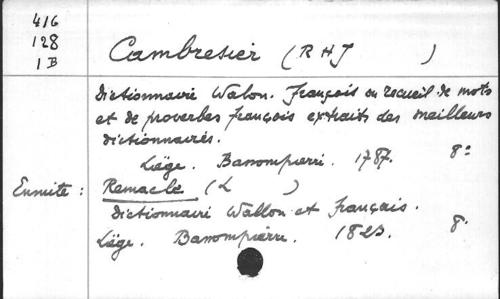 416
128
1 B
Cambresier (R H J )
Dictionnaire Walon. François ou recueil de mots
et de proverbes françois extraits des meilleurs
dictionnaires.
Liége. Bassompierre. 1787. 8º
Ensuite : Remacle (L )
Dictionnaire Wallon et Français.
Liége. Bassompierre. 1823. 8º